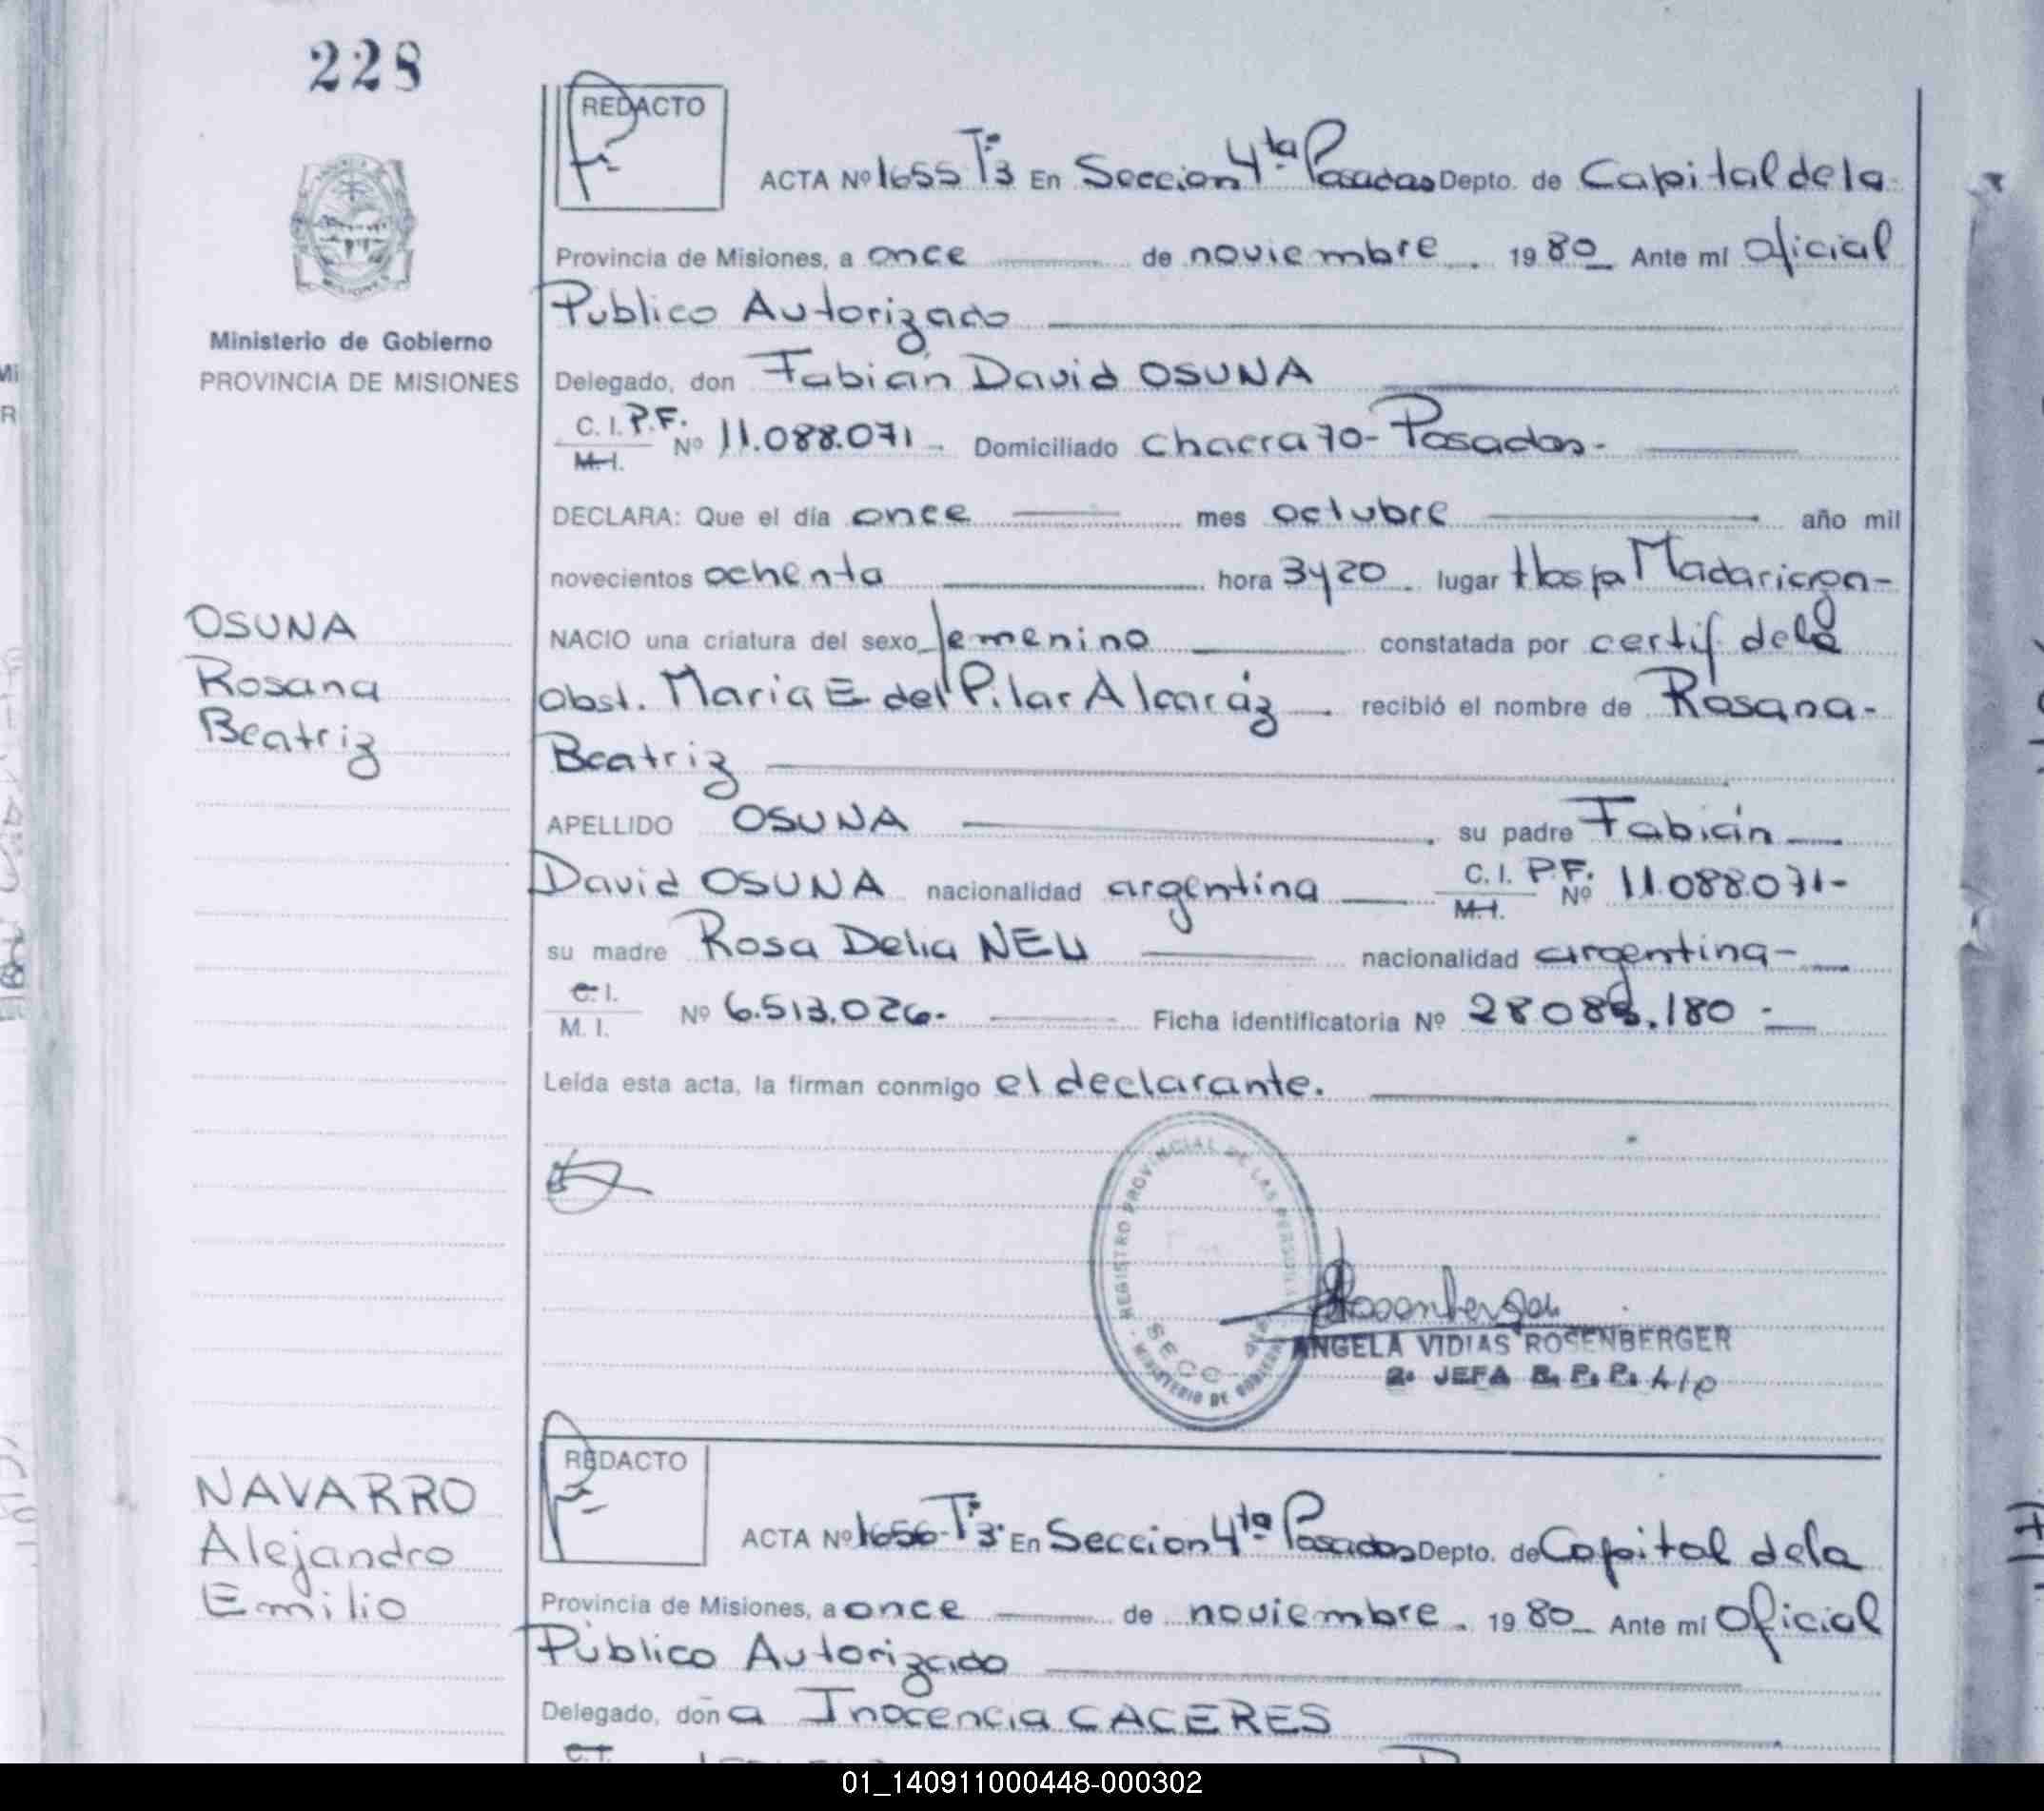 228
REDACTO
ACTA Nº 1655 Tº3 En Seccion 4ta Posadas Depto. de Capital de la
Provincia de Misiones, a once de noviembre. 1980 Ante mí Oficial
Publico Autorizado
Ministerio de Gobierno
PROVINCIA DE MISIONES
Delegado, don Fabián David OSUNA
C. I. P.F. Nº 11.088.071 - Domiciliado Chacra 70 - Posadas -
M. I.
DECLARA: Que el día once mes octubre año mil
novecientos ochenta hora 3y20. lugar Hosp Madariaga -
OSUNA
Rosana
Beatriz
NACIO una criatura del sexo femenino constatada por certif. de la
Obst. Maria E del Pilar Alcaráz recibió el nombre de Rosana -
Beatriz
APELLIDO OSUNA su padre Fabián
David OSUNA nacionalidad argentina C. I. P.F. Nº 11.088.071 -
M. I.
su madre Rosa Delia NEU nacionalidad argentina -
C. I.
M. I. Nº 6.513.026. Ficha identificatoria Nº 28.088.180 -
Leída esta acta, la firman conmigo el declarante.
REGISTRO PROVINCIAL DE LAS PERSONAS
SECC 4ta
MINISTERIO DE GOBIERNO
Rosenberger
ANGELA VIDIAS ROSENBERGER
2ª JEFA R. P. P.
REDACTO
NAVARRO
Alejandro
Emilio
ACTA Nº 1656 - Tº3 En Seccion 4ta Posadas Depto. de Capital de la
Provincia de Misiones, a once de noviembre. 1980 Ante mí Oficial
Público Autorizado
Delegado, doña Inocencia CACERES
C. I.
01_140911000448-000302